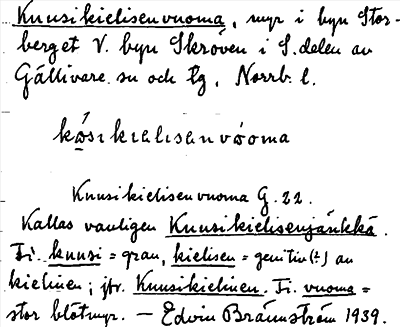 Kuusikielisenvuoma, myr i byn Stor-
berget V. byn Skröven i S. delen av
Gällivare sn och tg, Norrb. l.
Kuusikielisenvuoma G. 22.
Kallas vanligen Kuusikielisenjänkkä.
Fi. kuusi = gran, kielisen = genitiv(?) av
kielinen; jfr. Kuusikielinen. Fi. vuoma =
stor blötmyr. — Edvin Brännström 1939.